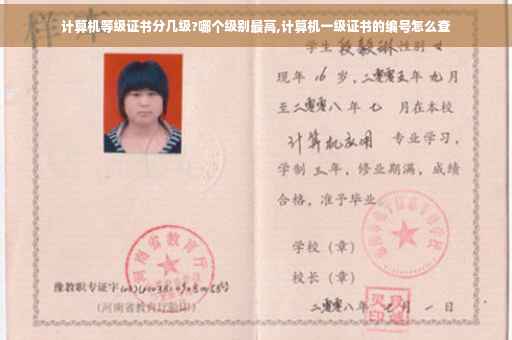 计算机等级证书分几级?哪个级别最高,计算机一级证书的编号怎么查
学生段毅琳性别女
现年16岁,二零零五年九月
至二零零八年七月在本校
计算机应用 专业学习,
学制三年,修业期满,成绩
合格,准予毕业。
学校(章)
校长(章)
二零零八年七月一日
河南省教育厅
豫教职专证字
(河南省教育厅验印)